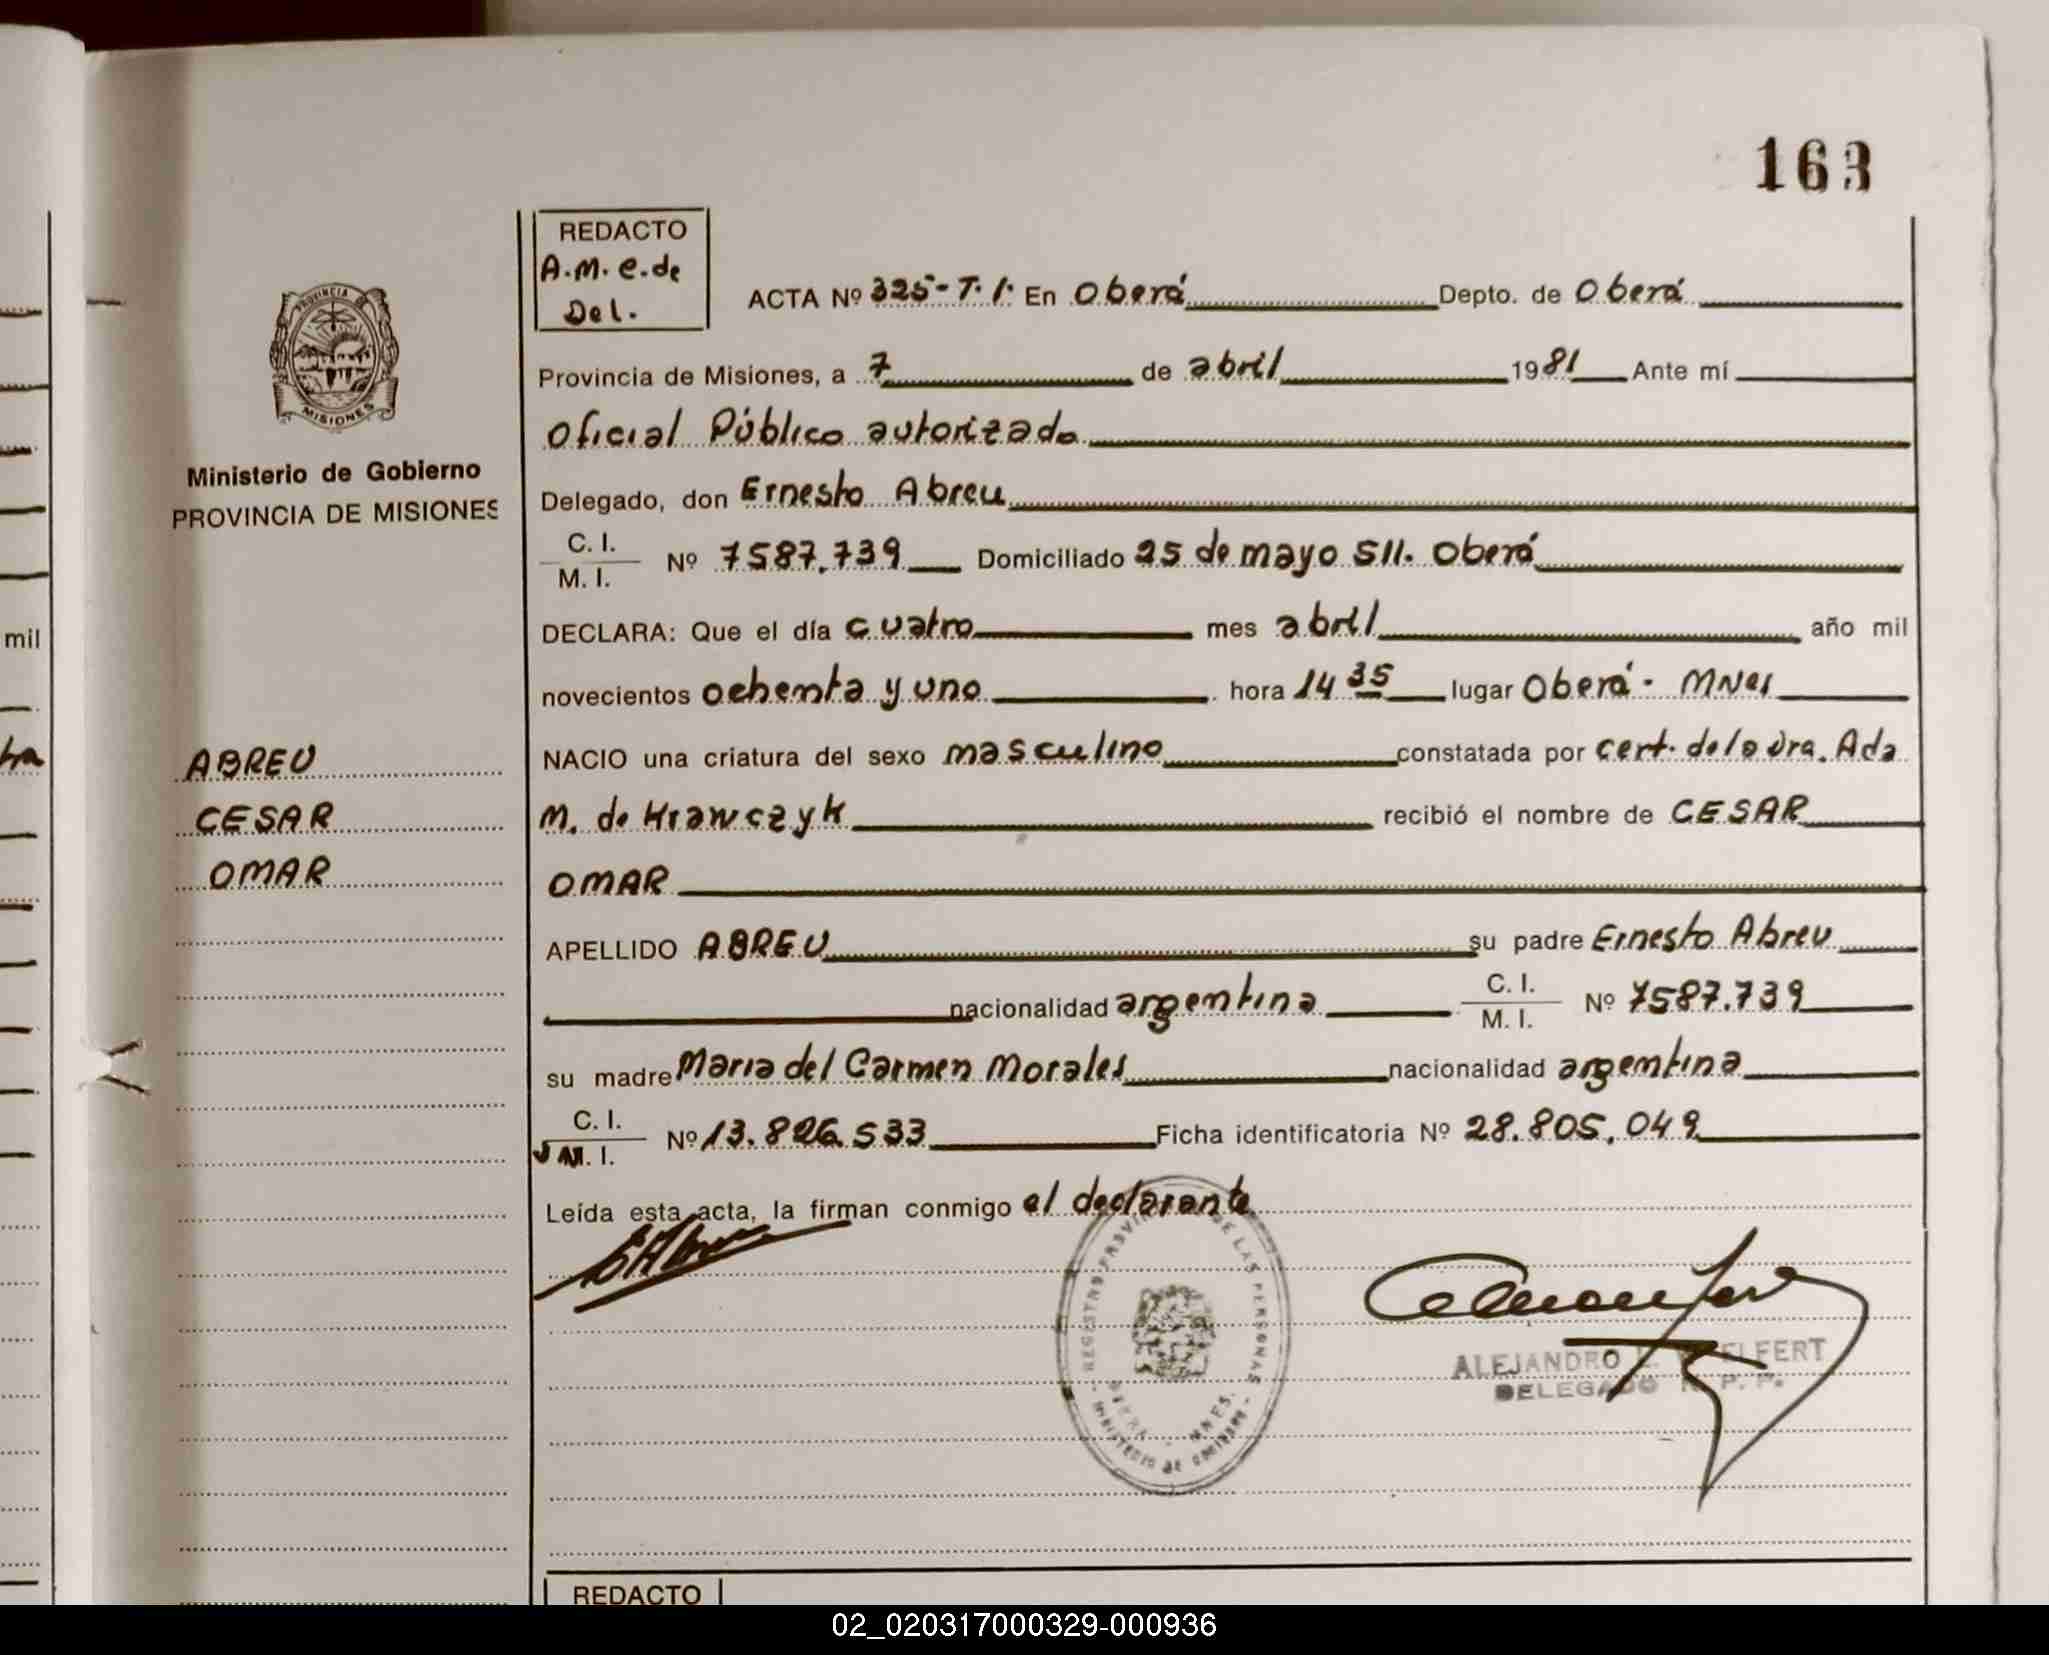 163
REDACTO
A.M.e.de
Del.
ACTA Nº 325-T.I. En Oberá Depto. de Oberá
Provincia de Misiones, a 7 de abril 1981 Ante mí
Oficial Público autorizado
Delegado, don Ernesto Abreu
C. I.
M. I. Nº 7587.739 Domiciliado 25 de mayo 511. Oberá
DECLARA: Que el día cuatro mes abril año mil
novecientos ochenta y uno hora 14 35 lugar Oberá - MNes
NACIO una criatura del sexo masculino constatada por cert. de la Dra. Ada
M. de Krawczyk recibió el nombre de CESAR
OMAR
APELLIDO ABREU su padre Ernesto Abreu
nacionalidad argentina C. I. M. I. Nº 7587.739
su madre Maria del Carmen Morales nacionalidad argentina
C. I. M. I. Nº 13.826.533 Ficha identificatoria Nº 28.805.049
Leída esta acta, la firman conmigo el declarante
PROVINCIA DE
MISIONES
Ministerio de Gobierno
PROVINCIA DE MISIONES
ABREU
CESAR
OMAR
mil
REGISTRO PROVINCIAL DE LAS PERSONAS
MINISTERIO DE GOBIERNO
OBERA - MNES.
ALEJANDRO
DELEGADO R. P. P.
REDACTO
02_020317000329-000936